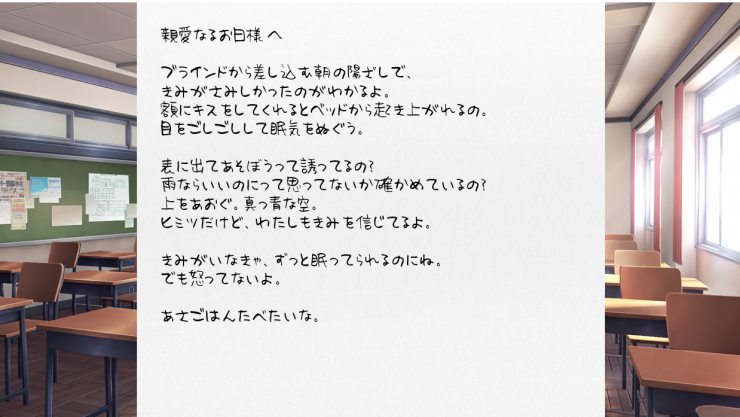 親愛なるお日様へ
ブラインドから差し込む朝の陽ざしで、
きみがさみしかったのがわかるよ。
額にキスをしてくれるとベッドから起き上がれるの。
目をごしごしして眠気をぬぐう。
表に出てあそぼうって誘ってるの?
雨ならいいのにって思ってないか確かめているの?
上をあおぐ。真っ青な空。
ヒミツだけど、わたしもきみを信じてるよ。
きみがいなきゃ、ずっと眠ってられるのにね。
でも怒ってないよ。
あさごはんたべたいな。